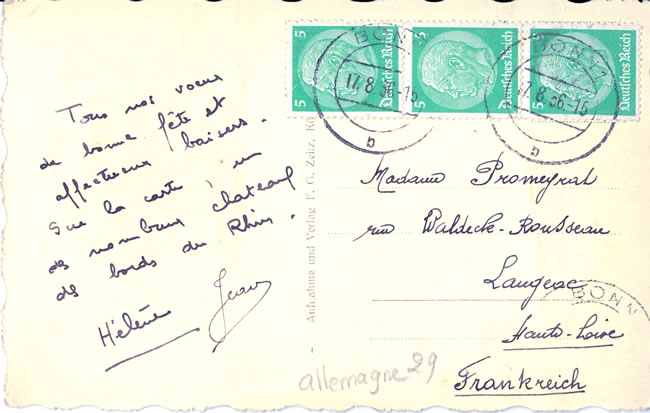 Tous nos voeux
de bonne fête et
affectueux baisers.
Sur la carte : un
des nombreux chateaux
des bords du Rhin.
Hélène Jean
5 Deutsches Reich
5 Deutsches Reich
5 Deutsches Reich
BONN
17.8.36-15
BONN
17.8.36-15
Aufnahme und Verlag F. G. Zeitz, Kö
Madame Promeyrat
rue Waldeck-Rousseau
Langeac
Haute-Loire
Frankreich
BONN
allemagne 29